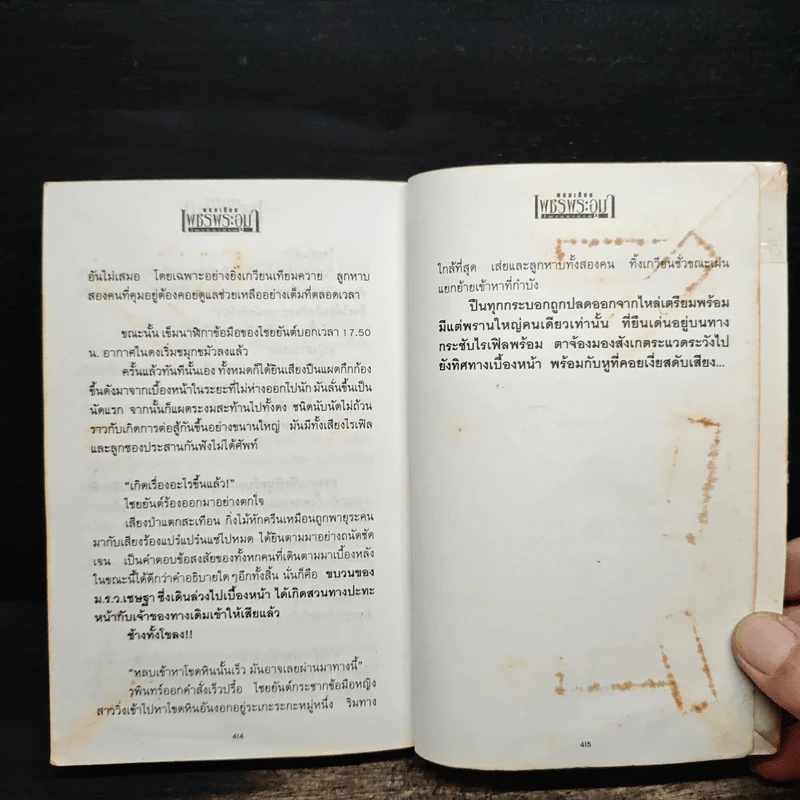 พนมเทียน
เพชรพระอุมา
อันไม่เสมอ โดยเฉพาะอย่างยิ่งเกวียนเทียมควาย ลูกหาบ
สองคนที่คุมอยู่ต้องคอยดูแลช่วยเหลืออย่างเต็มที่ตลอดเวลา
ขณะนั้น เข็มนาฬิกาข้อมือของไชยยันต์บอกเวลา 17.50
น. อากาศในดงเริ่มขมุกขมัวลงแล้ว
ครั้นแล้วทันทีนั้นเอง ทั้งหมดก็ได้ยินเสียงปืนแผดกึกก้อง
ขึ้นดังมาจากเบื้องหน้าในระยะที่ไม่ห่างออกไปนัก มันลั่นขึ้นเป็น
นัดแรก จากนั้นก็แผดระงมสะท้านไปทั้งดง ชนิดนับนัดไม่ถ้วน
ราวกับเกิดการต่อสู้กันขึ้นอย่างขนานใหญ่ มันมีทั้งเสียงไรเฟิล
และลูกซองประสานกันฟังไม่ได้ศัพท์
"เกิดเรื่องอะไรขึ้นแล้ว!"
ไชยยันต์ร้องออกมาอย่างตกใจ
เสียงป่าแตกสะเทือน กิ่งไม้หักครืนเหมือนถูกพายุระคน
มากับเสียงร้องแปร๋แปร๋นแซ่ไปหมด ได้ยินตามมาอย่างถนัดชัด
เจน เป็นคำตอบข้อสงสัยของทั้งหกคนที่เดินตามมาเบื้องหลัง
ในขณะนี้ได้ดีกว่าคำอธิบายใดๆอีกทั้งสิ้น นั่นก็คือ ขบวนของ
ม.ร.ว.เชษฐา ซึ่งเดินล่วงไปเบื้องหน้า ได้เกิดสวนทางปะทะ
หน้ากับเจ้าของทางเดิมเข้าให้เสียแล้ว
ช้างทั้งโขลง!!
"หลบเข้าหาโขดหินนั้นเร็ว มันอาจเลยผ่านมาทางนี้"
รพินทร์ออกคำสั่งเร็วปรื๋อ ไชยยันต์กระชากข้อมือหญิง
สาววิ่งเข้าไปหาโขดหินอันงอกอยู่ระเกะระกะหมู่หนึ่ง ริมทาง
414
พนมเทียน
เพชรพระอุมา
ใกล้ที่สุด เส่ยและลูกหาบทั้งสองคน ทิ้งเกวียนชั่วขณะเผ่น
แยกย้ายเข้าหาที่กำบัง
ปืนทุกกระบอกถูกปลดออกจากไหล่เตรียมพร้อม
มีแต่พรานใหญ่คนเดียวเท่านั้น ที่ยืนเด่นอยู่บนทาง
กระชับไรเฟิลพร้อม ตาจ้องมองสังเกตระแวดระวังไป
ยังทิศทางเบื้องหน้า พร้อมกับหูที่คอยเงี่ยสดับเสียง...
415